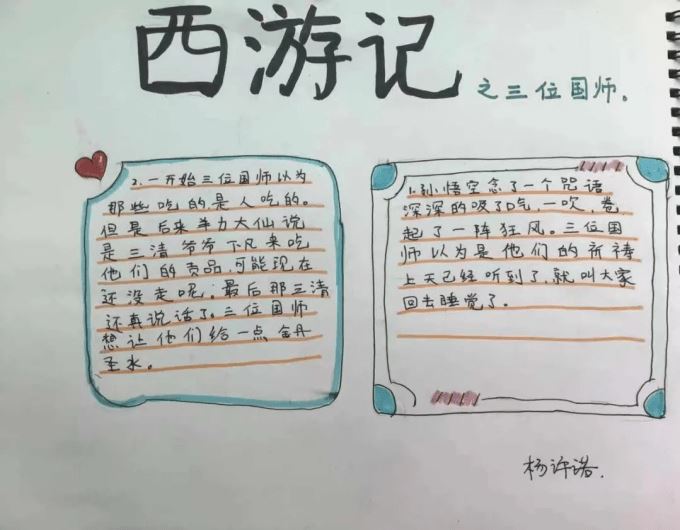 西游记
之三位国师。
2.一开始三位国师以为
那些吃的是人吃的。
但是后来羊力大仙说
是三清爷爷下凡来吃
他们的贡品,可能现在
还没走呢,最后那三清
还真说话了。三位国师
想让他们给一点金丹
圣水。
1.孙悟空念了一个咒语
深深的吸了口气,一吹,卷
起了一阵狂风。三位国
师以为是他们的祈祷
上天已经听到了,就叫大家
回去睡觉了。
杨许诺.